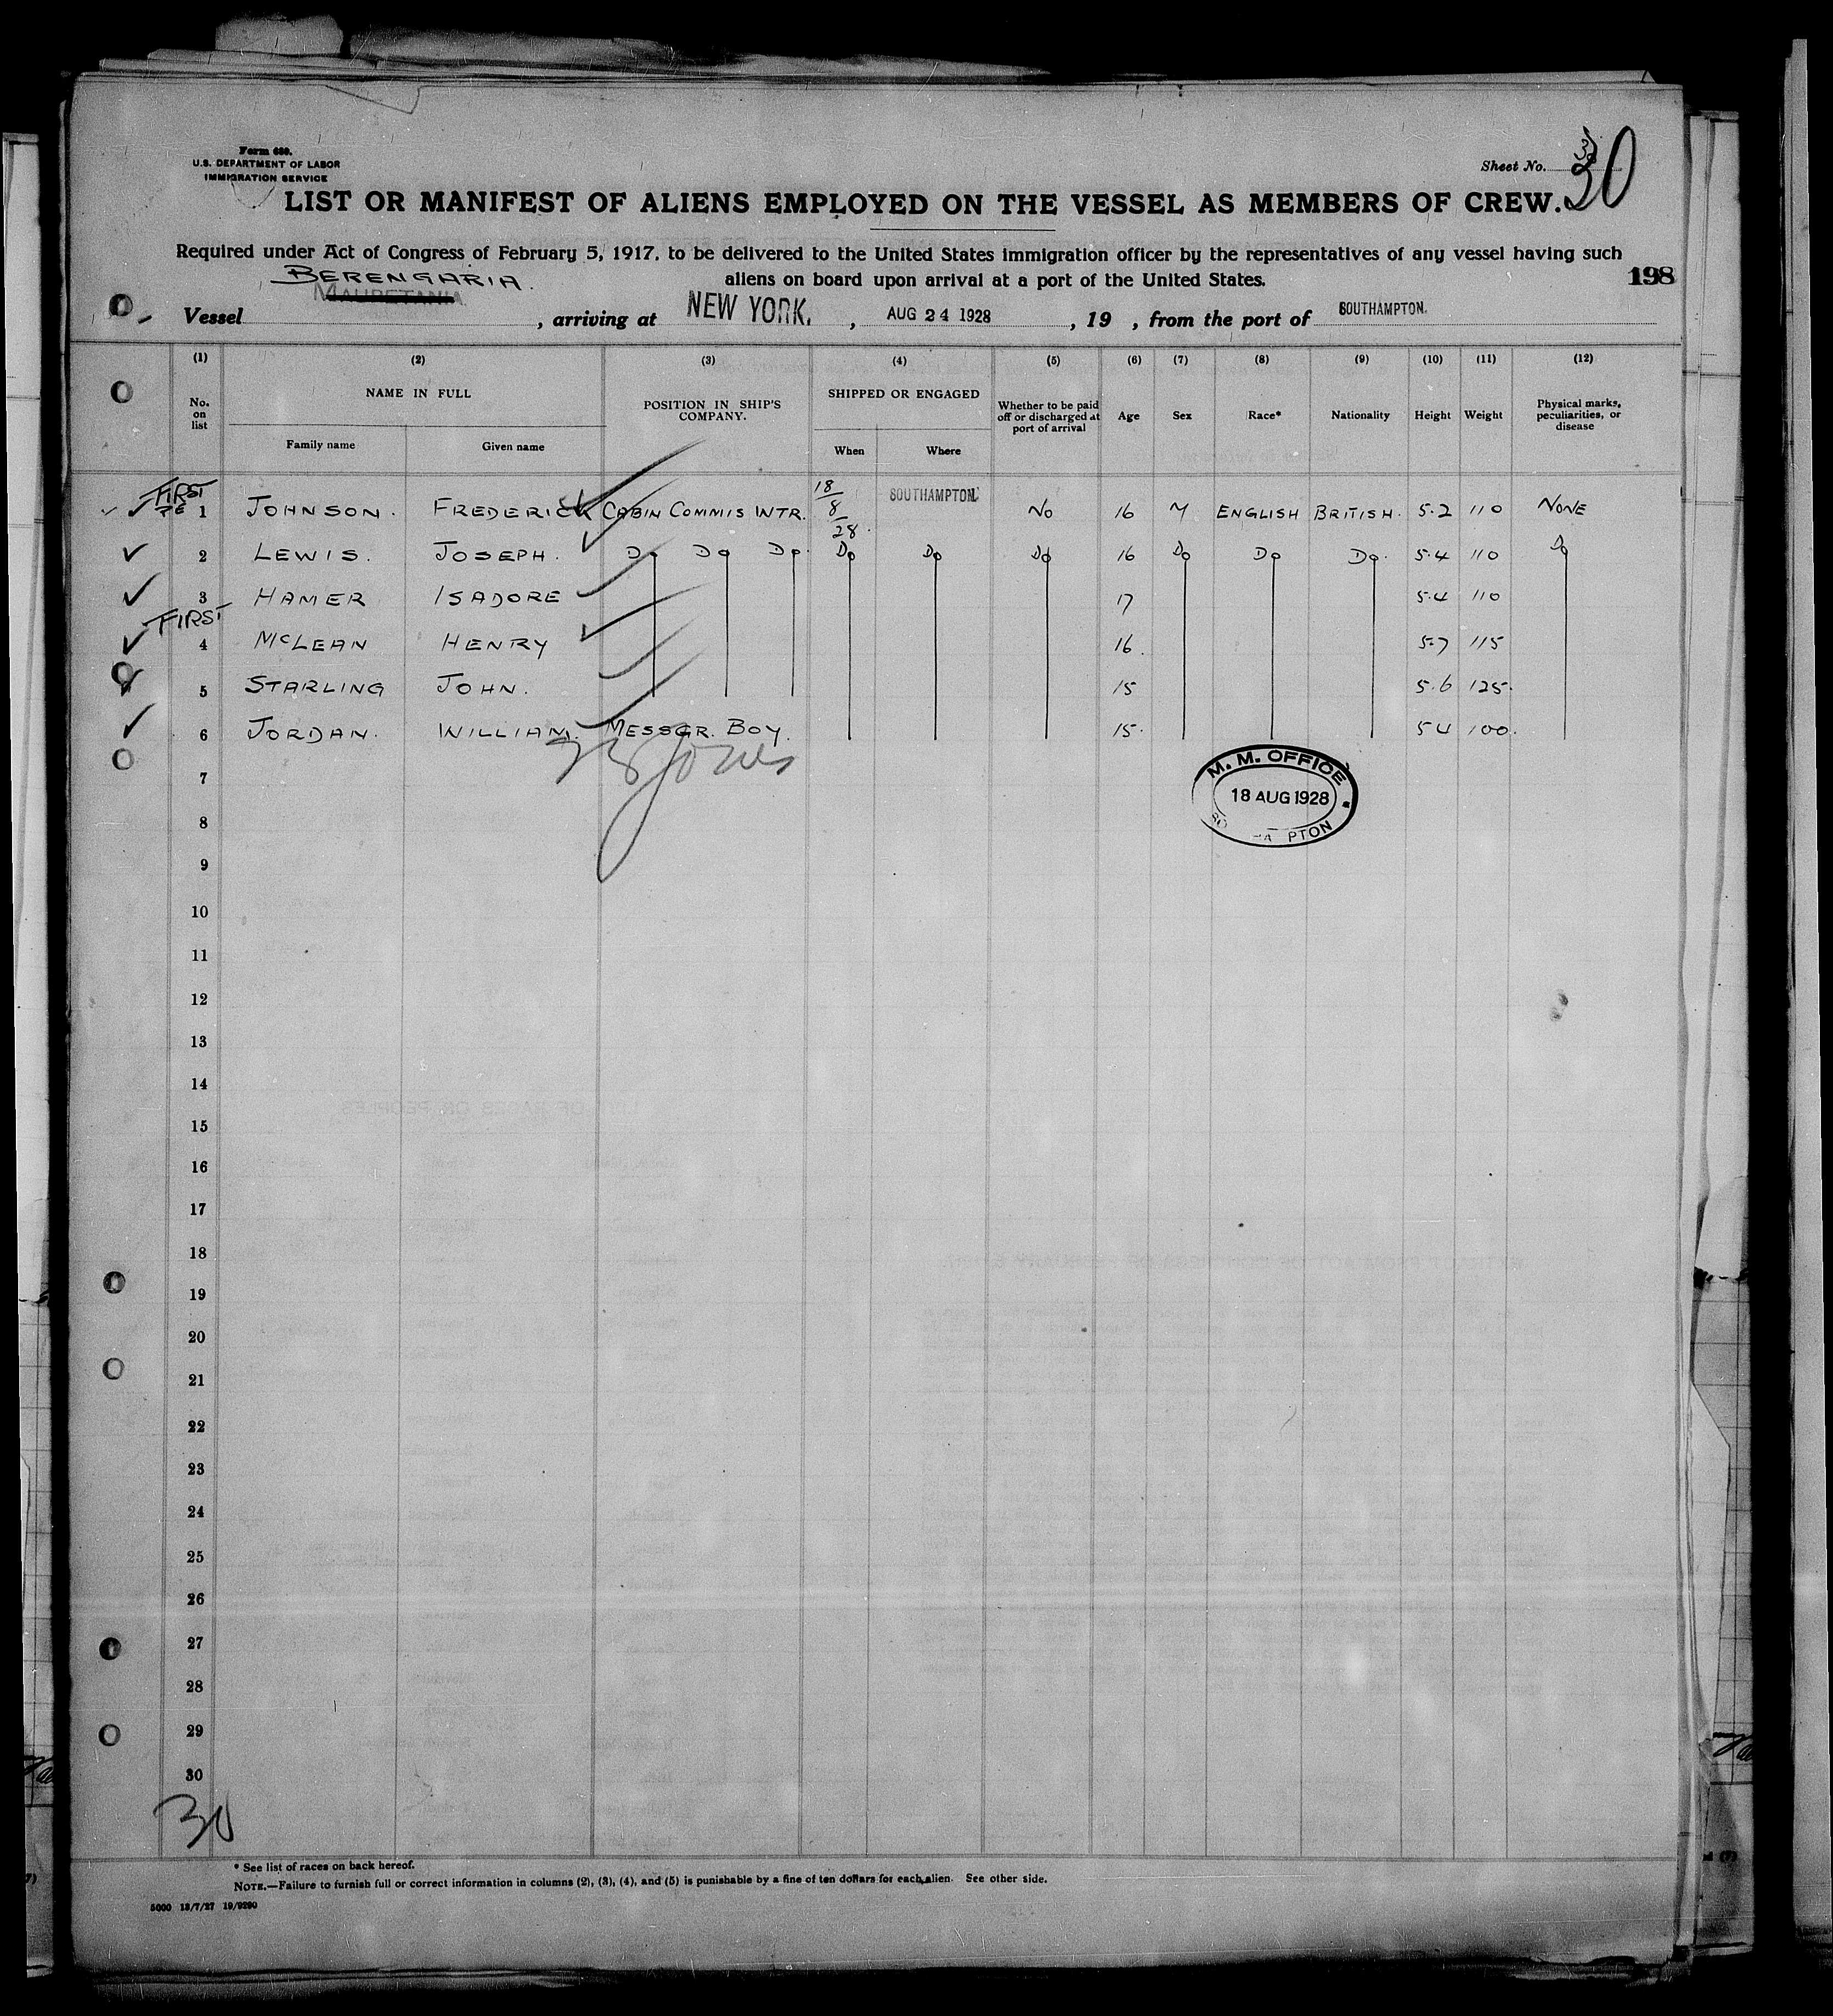 Form 680.
U.S. DEPARTMENT OF LABOR
IMMIGRATION SERVICE
Sheet No. 30
LIST OR MANIFEST OF ALIENS EMPLOYED ON THE VESSEL AS MEMBERS OF CREW.
Required under Act of Congress of February 5, 1917, to be delivered to the United States immigration officer by the representatives of any vessel having such
aliens on board upon arrival at a port of the United States.
198
BERENGARIA.
MAURETANIA
Vessel , arriving at NEW YORK. , AUG 24 1928 , 19 , from the port of SOUTHAMPTON.
(1) (2) (3) (4) (5) (6) (7) (8) (9) (10) (11) (12)
No. on list NAME IN FULL POSITION IN SHIP'S COMPANY. SHIPPED OR ENGAGED Whether to be paid off or discharged at port of arrival Age Sex Race* Nationality Height Weight Physical marks, peculiarities, or disease
Family name Given name When Where
FIRST
1 JOHNSON. FREDERICK CABIN COMMIS WTR. 18/8/28. SOUTHAMPTON. NO 16 M ENGLISH BRITISH. 5.2 110 NONE
2 LEWIS. JOSEPH. Do Do Do. Do Do Do 16 Do Do Do. 5.4 110 Do
3 HAMER ISADORE 17 5.4 110
FIRST
4 McLEAN HENRY 16. 5.7 115
5 STARLING JOHN. 15 5.6 125.
6 JORDAN. WILLIAM. MESSGR. BOY. 15. 5 4 100.
7
M. M. OFFICE
18 AUG 1928
8
9
10
11
12
13
14
15
16
17
18
19
20
21
22
23
24
25
26
27
28
29
30
30
* See list of races on back hereof.
NOTE.—Failure to furnish full or correct information in columns (2), (3), (4), and (5) is punishable by a fine of ten dollars for each alien. See other side.
5000 13/7/27 19/9290